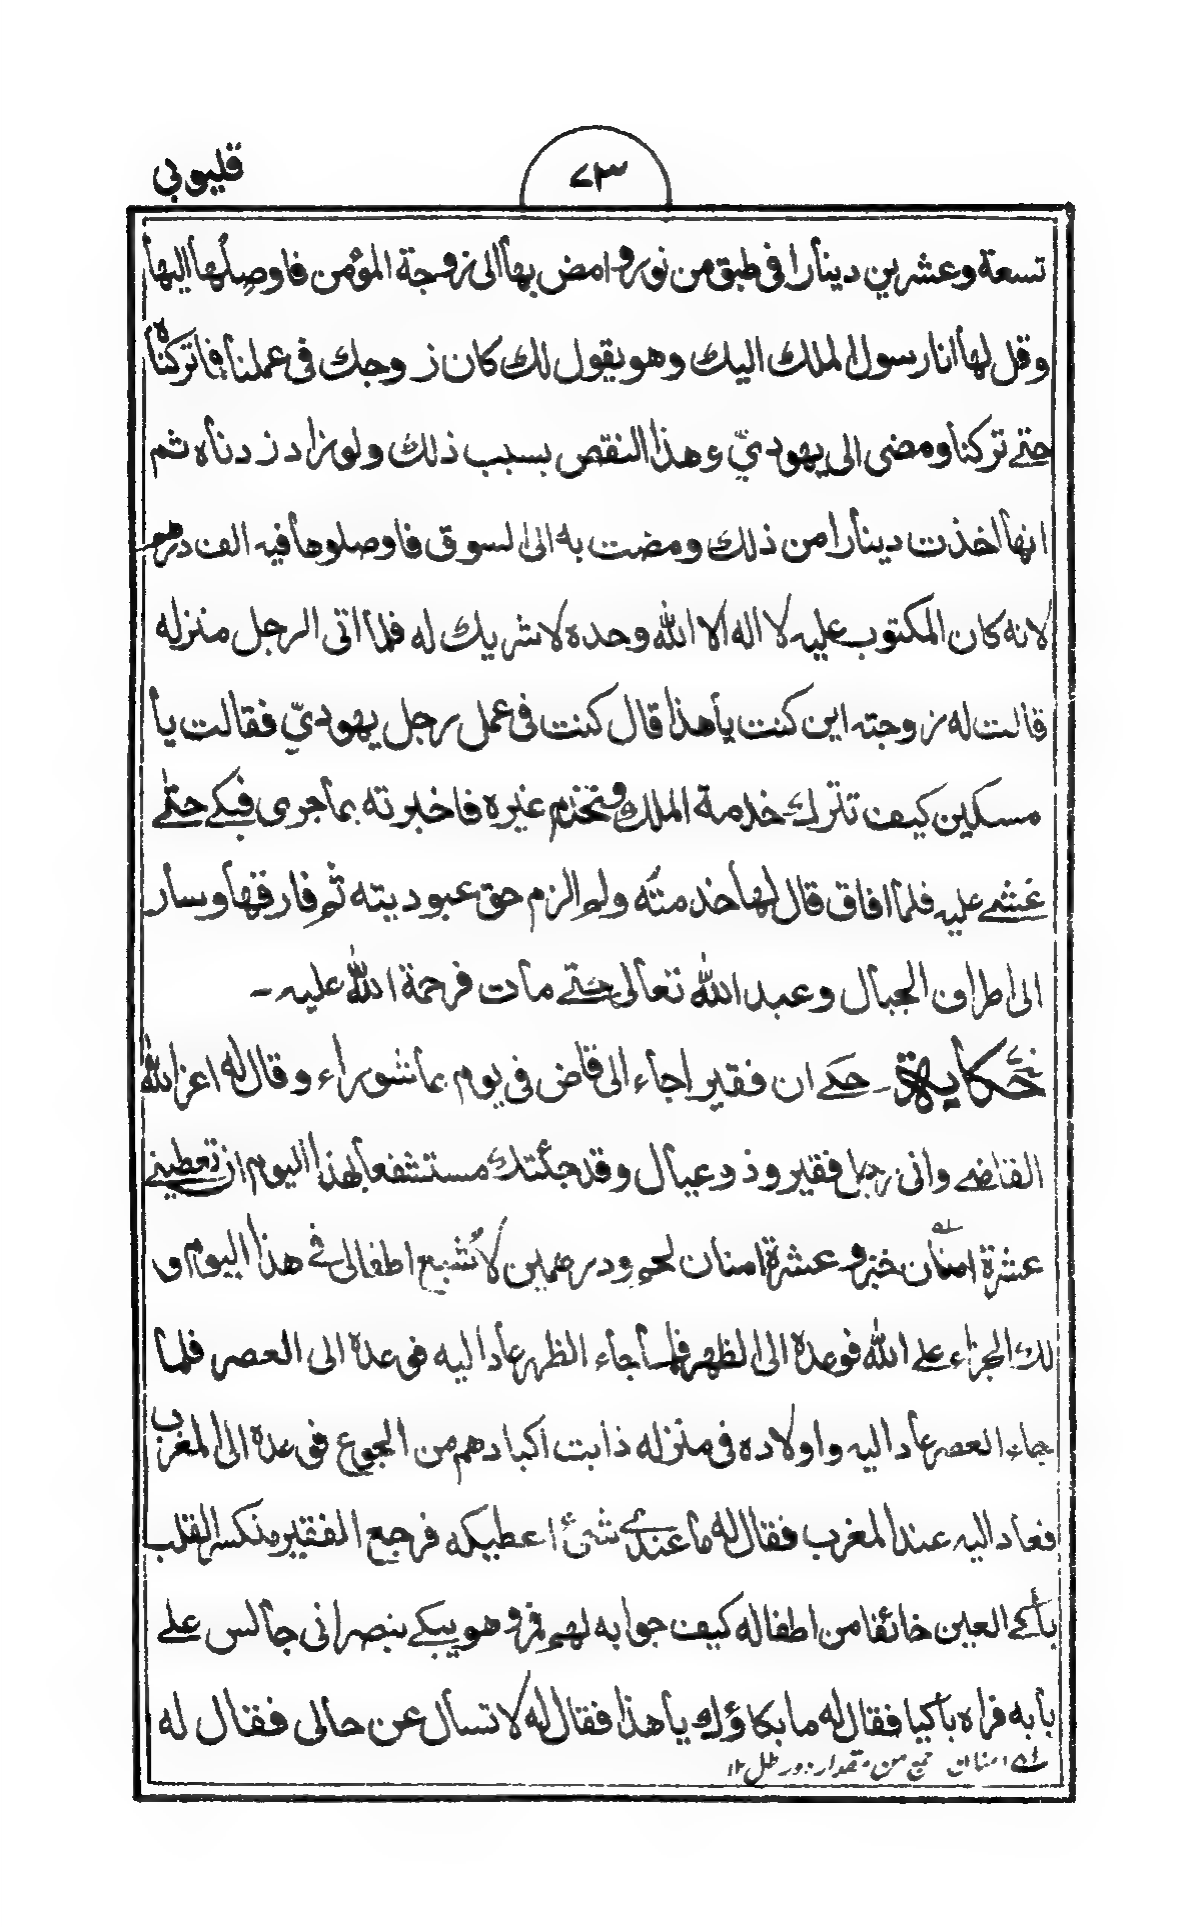 قليوبي
٧٣
تسعة وعشرين دينارا في طبق من نور وامض بها الى زوجة المؤمن فاوصلها اليها
وقل لها انا رسول الملك اليك وهو يقول لك كان زوجك فى عملنا فاتركناه
حتے تركنا ومضى الى يهوديّ وهذا النقص بسبب ذلك ولو زاد زدناه ثم
انها اخذت دينارا من ذلك ومضت به الى السوق فاوصلوها فيه الف درهم
لانه كان المكتوب عليه لا اله الا الله وحده لا شريك له فلما اتى الرجل منزله
قالت له زوجته اين كنت يا هذا قال كنت فى عمل رجل يهوديّ فقالت يا
مسكين كيف تترك خدمة الملك وتخدم غيره فاخبرته بما جرى فبكے حتے
غشے عليه فلما افاق قال لها خدمته ولم الزم حق عبوديته ثم فارقها وسار
الى اطراف الجبال وعبد الله تعالى حتے مات فرحمة الله عليه ـ
حكاية ـ حكے ان فقيرا جاء الى قاض فى يوم عاشوراء وقال له اعز الله
القاضے وانى رجل فقير وذو عيال وقد جئتك مستشفعا بهذا اليوم ان تعطينے
عشرة امنان خبز وعشرة امنان لحم ودرهمين لا تشبع اطفالى فے هذا اليوم و
لك الجزاء علے الله فوعده الى الظهر فلما جاء الظهر عاد اليه فوعده الى العصر فلما
جاء العصر عاد اليه واولاده فى منزله ذابت اكبادهم من الجوع فوعده الى المغرب
فعاد اليه عند المغرب فقال له ما عندے شئ اعطيكه فرجع الفقير منكسر القلب
باكے العين خائفا من اطفاله كيف جوابه لهم فمر وهو يبكے بنصرانى جالس علے
بابه فراه باكيا فقال له ما بكاؤك يا هذا فقال له لا تسأل عن حالى فقال له
لہ امنان جمع من مقدار دو رطل ١٢